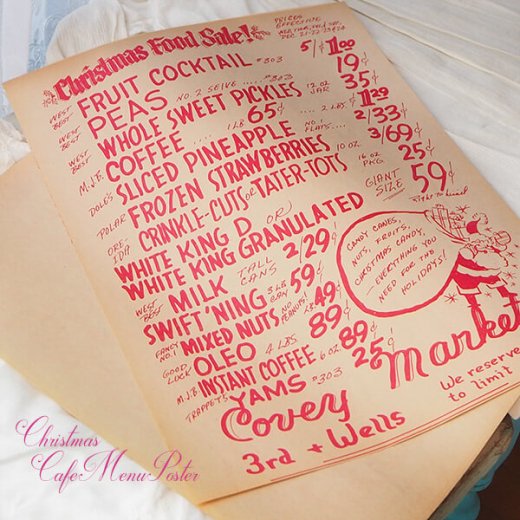 Christmas Food Sale!
PRICES
EFFECTIVE
DEC. 21-22-23 &
WEST BEST FRUIT COCKTAIL #303 5/$1.00
WEST BEST PEAS NO. 2 SEIVE .... #303 19¢
WEST BEST WHOLE SWEET PICKLES 12 OZ. JAR 35¢
M.J.B. COFFEE .... 1 LB. 65¢ .... 2 LBS. $1.29
DOLE'S SLICED PINEAPPLE NO. 1 FLATS.... 2/33¢
POLAR FROZEN STRAWBERRIES 10 OZ. 3/69¢
ORE IDA CRINKLE-CUTS or TATER-TOTS 16 OZ. PKG. 25¢
WHITE KING D OR)
WHITE KING GRANULATED GIANT SIZE 59¢
Right to
WEST BEST MILK TALL CANS 2/29¢
SWIFT'NING 3 LB. CAN 59¢
FANCY NO. 1 MIXED NUTS NO PEANUTS! LB. 49¢
GOOD LUCK OLEO 4 LBS. 89¢
M.J.B. INSTANT COFFEE 6 OZ. 89¢
TRAPPETS YAMS #303 25¢
CANDY CANES,
NUTS, FRUITS,
CHRISTMAS CANDY,
EVERYTHING YOU
NEED FOR THE
HOLIDAYS!
Covey Market
3rd + Wells
We reserve
to limit
Christmas
Cafe Menu Poster